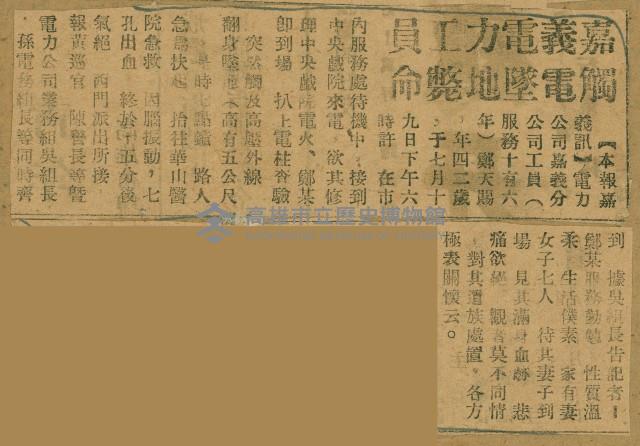 嘉義電力工員
觸電墜地斃命
【本報嘉
義訊】電力
公司嘉義分
公司工員（
服務十有六
年）鄭天賜
，年四二歲
，于七月十
九日下午六
時許 在市
內服務處待機中，接到
中央戲院來電，欲其修
理中央戲院電火、鄭某
即到場 扒上電柱查驗
突然觸及高壓外線
翻身墜地 高有五公尺
時七點鐘 路人
急為扶起 抬往華山醫
院急救 因腦振動，七
孔出血 終於十五分後
氣絕 西門派出所接
報黃巡官 陳警長等暨
電力公司業務組吳組長
，孫電務組長等同時齊
到 據吳組長告記者－
鄭某服務勤勉 性質溫
柔 生活僕素 家有妻
女子七人 待其妻子到
場 見其滿身血跡 悲
痛欲絕 觀者莫不同情
，對其遺族處置。各方
極表關懷云。
高雄市立歷史博物館